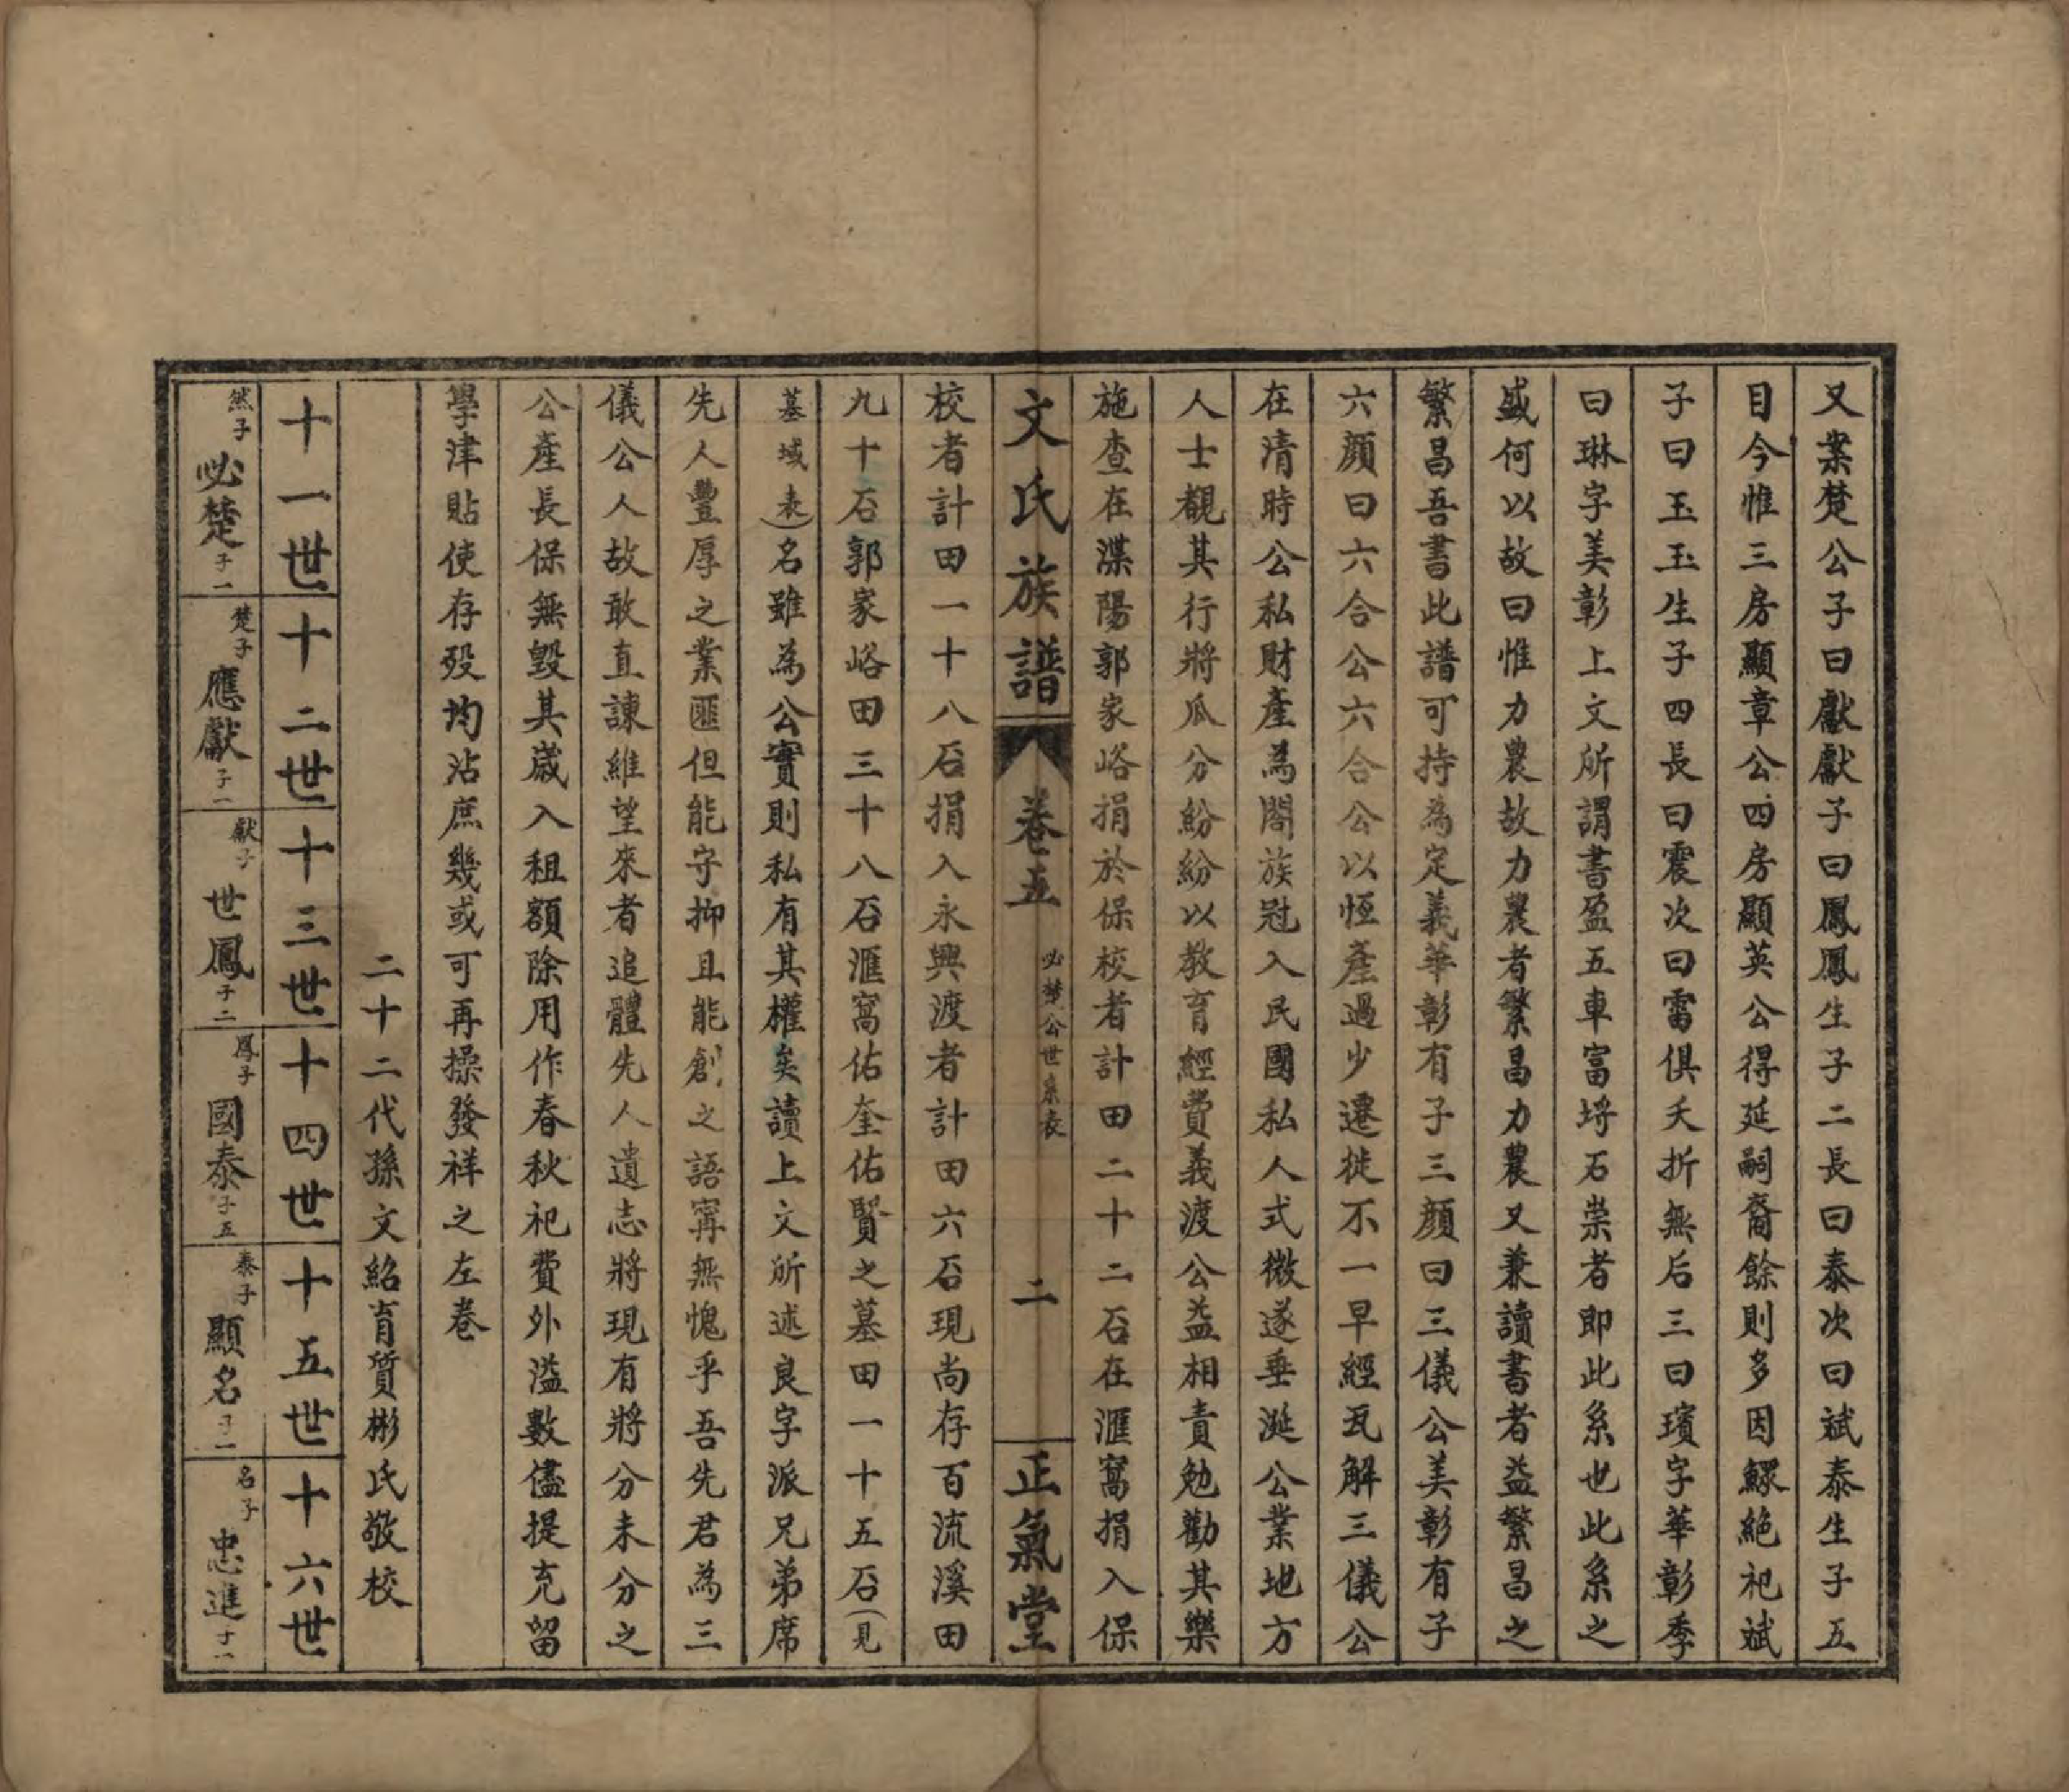 又案楚公子曰獻獻子曰鳳鳳生子二長曰泰次曰斌泰生子五
目今惟三房顯章公四房顯英公得延嗣裔餘則多因鰥絶祀斌
子曰玉玉生子四長曰震次曰雷俱夭折無后三曰璸字華彰季
曰琳字美彰上文所謂書盈五車富埒石崇者即此系也此系之
盛何以故曰惟力農故力農者繁昌力農又兼讀書者益繁昌之
繁昌吾書此譜可持為定義華彰有子三顏曰三儀公美彰有子
六顏曰六合公六合公以恆產過少遷徙不一早經瓦解三儀公
在清時公私財產為閤族冠入民國私人式微遂垂涎公業地方
人士覩其行將瓜分紛紛以教育經費義渡公益相責勉勸其樂
施查在渫陽郭家峪捐於保校者計田二十二石在滙窩捐入保
文氏族譜 卷五 必楚公世系表 二 正氣堂
校者計田一十八石捐入永興渡者計田六石現尚存百流溪田
九十石郭家峪田三十八石滙窩佑奎佑賢之墓田一十五石(見
墓域表)名雖為公實則私有其權矣讀上文所述良字派兄弟席
先人豐厚之業匪但能守抑且能創之語寧無愧乎吾先君為三
儀公人故敢直諫維望來者追體先人遺志將現有將分未分之
公產長保無毀其歲入租額除用作春秋祀費外溢數儘提充留
學津貼使存歿均沾庶幾或可再操發祥之左卷
二十二代孫文紹育質彬氏敬校
十一世 十二世 十三世 十四世 十五世 十六世
然子 必楚 子一 楚子 應獻 子一 獻子 世鳳 子二 鳳子 國泰 子五 泰子 顯名 子一 名子 忠進 子一